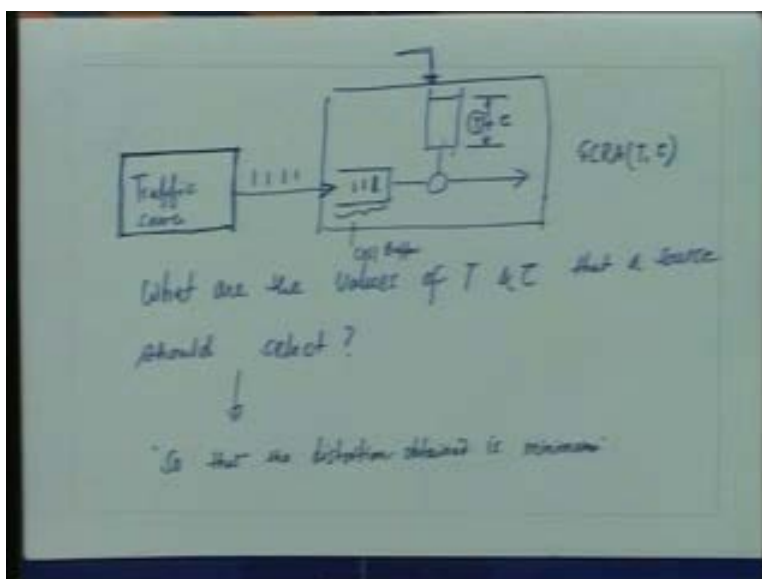 Traffic
source
T + τ
GCRA(T, τ)
Cell Buffer
What are the values of T & τ that a source
should select?
"So that the distortion obtained is minimum"